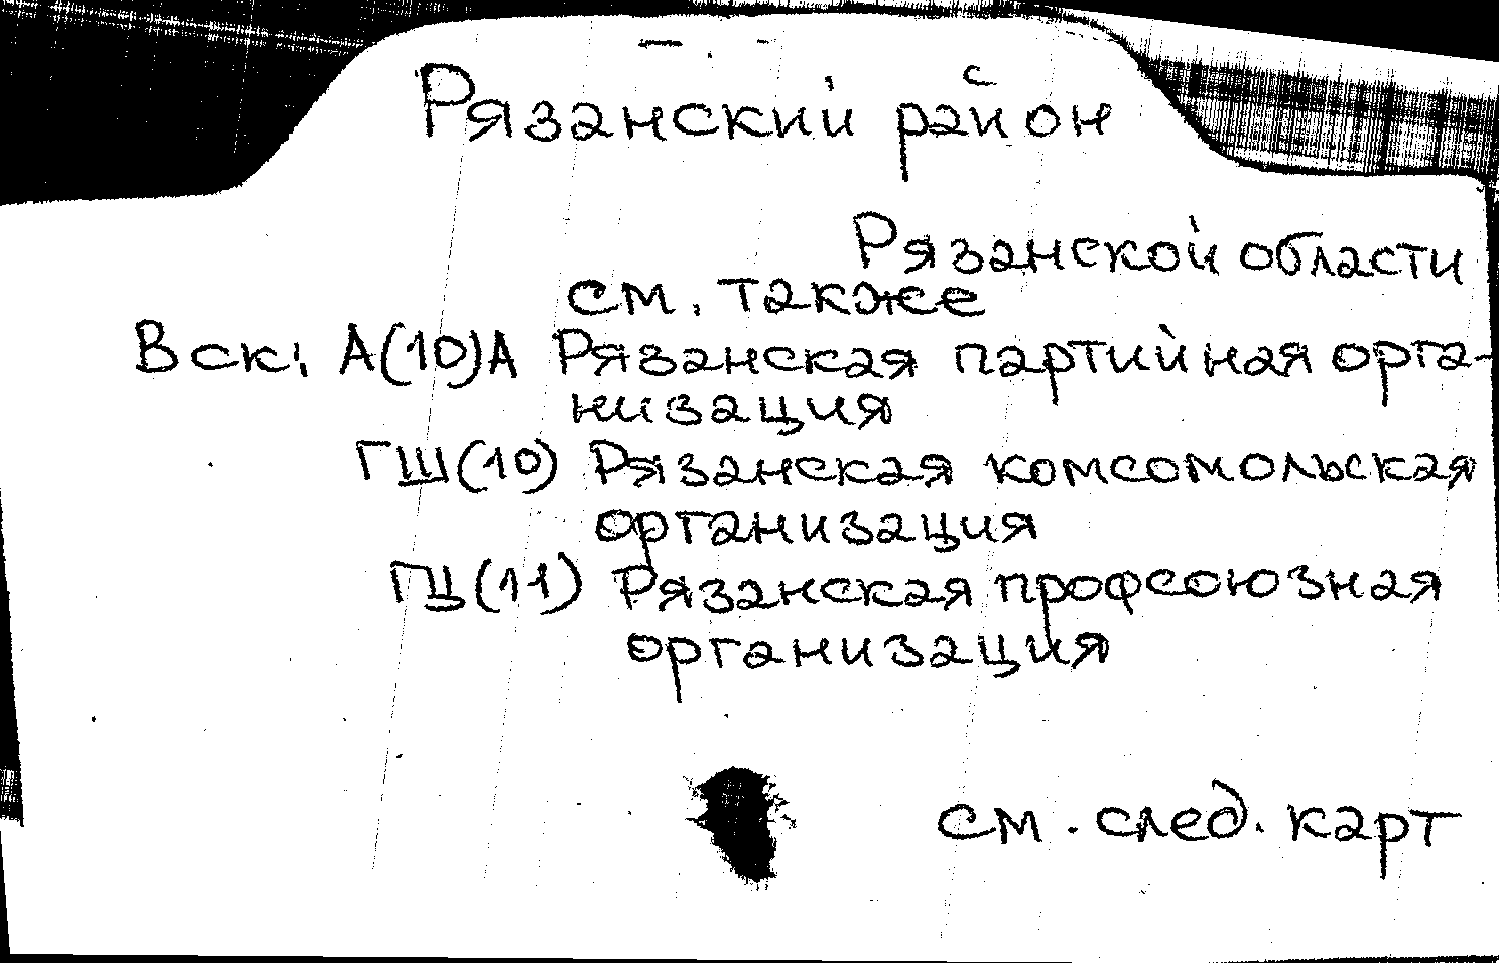 Рязанский район
Рязанской области
см. также
Вск: А(10)А Рязанская партийная орга-
низация
ГШ(10) Рязанская комсомольская
организация
ГЦ(11) Рязанская профсоюзная
организация
см. след. карт